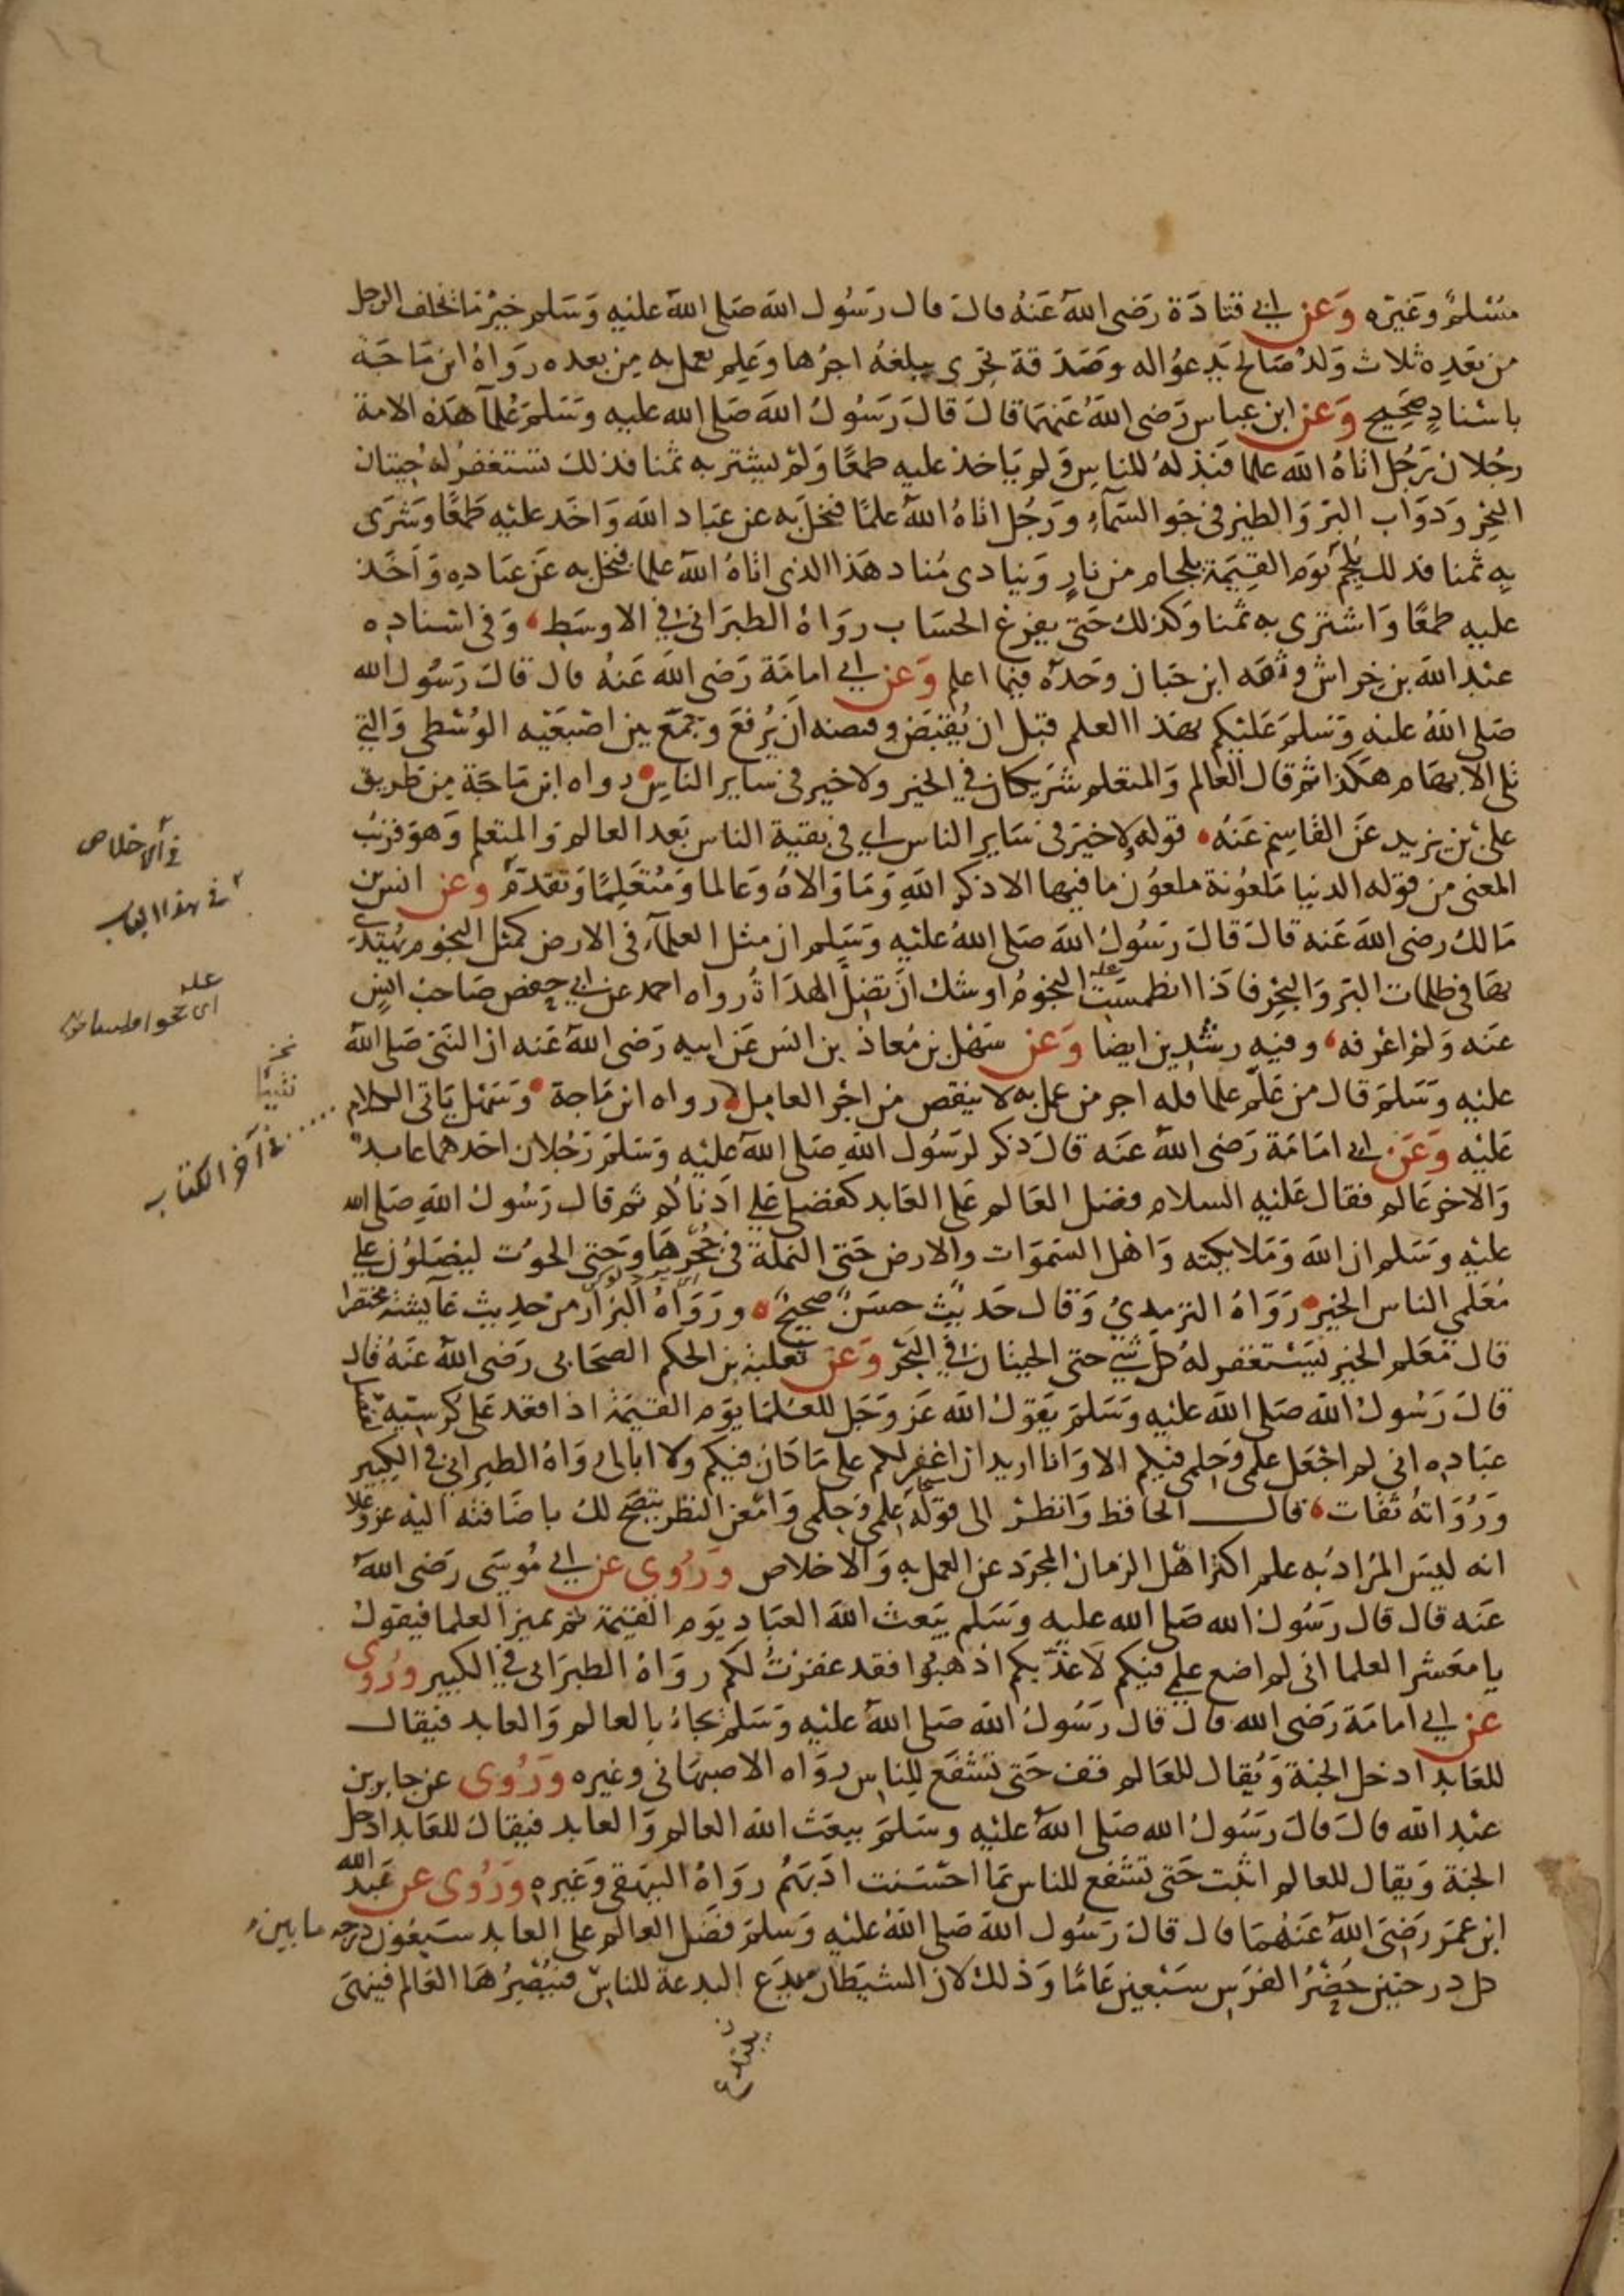 مسلم وغيره وعن ابي قتادة رضى الله عنه قال قال رسول الله صلى الله عليه وسلم خير ما يخلف الرجل
من بعده ثلاث ولد صالح يدعوا له وصدقة تجرى يبلغه اجرها وعلم يعمل به من بعده رواه ابن ماجة
باسناد صحيح وعن ابن عباس رضى الله عنهما قال قال رسول الله صلى الله عليه وسلم علمآ هذه الامة
رجلان رجل اتاه الله علما فبذله للناس ولم ياخذ عليه طمعا ولم يشتر به ثمنا فذلك تستغفر له حيتان
البحر ودواب البر والطير فى جو السمآء ورجل اتاه الله علما فبخل به عن عباد الله واخذ عليه طمعا وشرى
به ثمنا فذلك يلجم يوم القيمة بلجام من نار وينادى مناد هذا الذى اتاه الله علما فبخل به عن عباده واخذ
عليه طمعا واشترى به ثمنا وكذلك حتى يفرغ الحساب رواه الطبرانى فى الاوسط وفى اسناده
عبد الله بن خراش وثقه ابن حبان وحده فيما اعلم وعن ابي امامة رضى الله عنه قال قال رسول الله
صلى الله عليه وسلم عليكم بهذا العلم قبل ان يقبض وقبضه ان يرفع وجمع بين اصبعيه الوسطى والتي
تلى الابهام هكذا ثم قال العالم والمتعلم شريكان في الخير ولا خير فى ساير الناس رواه ابن ماجة من طريق
على بن يزيد عن القاسم عنه قوله لا خير فى ساير الناس اي في بقية الناس بعد العالم والمتعلم وهو قريب
المعنى من قوله الدنيا ملعونة ملعون ما فيها الا ذكر الله وما والاه وعالما ومتعلما وتقدم وعن انس بن
مالك رضى الله عنه قال قال رسول الله صلى الله عليه وسلم ان مثل العلمآء فى الارض كمثل النجوم يهتدي
بها فى ظلمات البر والبحر فاذا انطمست النجوم اوشك ان تضل الهداة رواه احمد عن ابي حفص صاحب انس
عنه ولم اعرفه وفيه رشدين ايضا وعن سهل بن معاذ بن انس عن ابيه رضى الله عنه ان النبى صلى الله
عليه وسلم قال من علم علما فله اجر من عمل به لا ينقص من اجر العامل رواه ابن ماجة وسهل ياتى الكلام
عليه وعن ابي امامة رضى الله عنه قال ذكر لرسول الله صلى الله عليه وسلم رجلان احدهما عابد
والاخر عالم فقال عليه السلام فضل العالم على العابد كفضلي علي ادناكم ثم قال رسول الله صلى الله
عليه وسلم ان الله وملايكته واهل السموات والارض حتى النملة في جحرها وحتى الحوت ليصلون علي
معلمي الناس الخير رواه الترمذي وقال حديث حسن صحيح ورواه البزار من حديث عايشة مختصرا
قال معلم الخير يستغفر له كل شي حتى الحيتان في البحر وعن ثعلبة بن الحكم الصحابى رضى الله عنه قال
قال رسول الله صلى الله عليه وسلم يقول الله عز وجل للعلما يوم القيمة اذا قعد على كرسيه
عباده اني لم اجعل علمى وحلمى فيكم الا وانا اريد ان اغفر لكم على ما كان فيكم ولا ابالى رواه الطبرانى فى الكبير
ورواته ثقات قال الحافظ وانظر الى قوله علمى وحلمى وامعن النظر يتضح لك باضافته اليه عز وعلا
انه ليس المراد به علم اكثر اهل الزمان المجرد عن العمل به والاخلاص وروى عن ابي موسى رضى الله
عنه قال قال رسول الله صلى الله عليه وسلم يبعث الله العباد يوم القيمة ثم يميز العلما فيقول
يا معشر العلما انى لم اضع علمي فيكم لاعذبكم اذهبوا فقد غفرت لكم رواه الطبرانى في الكبير وروى
عن ابي امامة رضى الله قال قال رسول الله صلى الله عليه وسلم يجاء بالعالم والعابد فيقال
للعابد ادخل الجنة ويقال للعالم قف حتى تشفع للناس رواه الاصبهانى وغيره وروى عن جابر بن
عبد الله قال قال رسول الله صلى الله عليه وسلم يبعث الله العالم والعابد فيقال للعابد ادخل
الجنة ويقال للعالم اثبت حتى تشفع للناس بما احسنت ادبهم رواه البيهقى وغيره وروى عن عبد الله
ابن عمر رضى الله عنهما قال قال رسول الله صلى الله عليه وسلم فضل العالم على العابد سبعون درجه ما بين
كل درجتين حضر الفرس سبعين عاما وذلك لان الشيطان يبدع البدعة للناس فيبصرها العالم فينهى
في الاخلاص
في هذا الكتاب
في آخر الكتاب